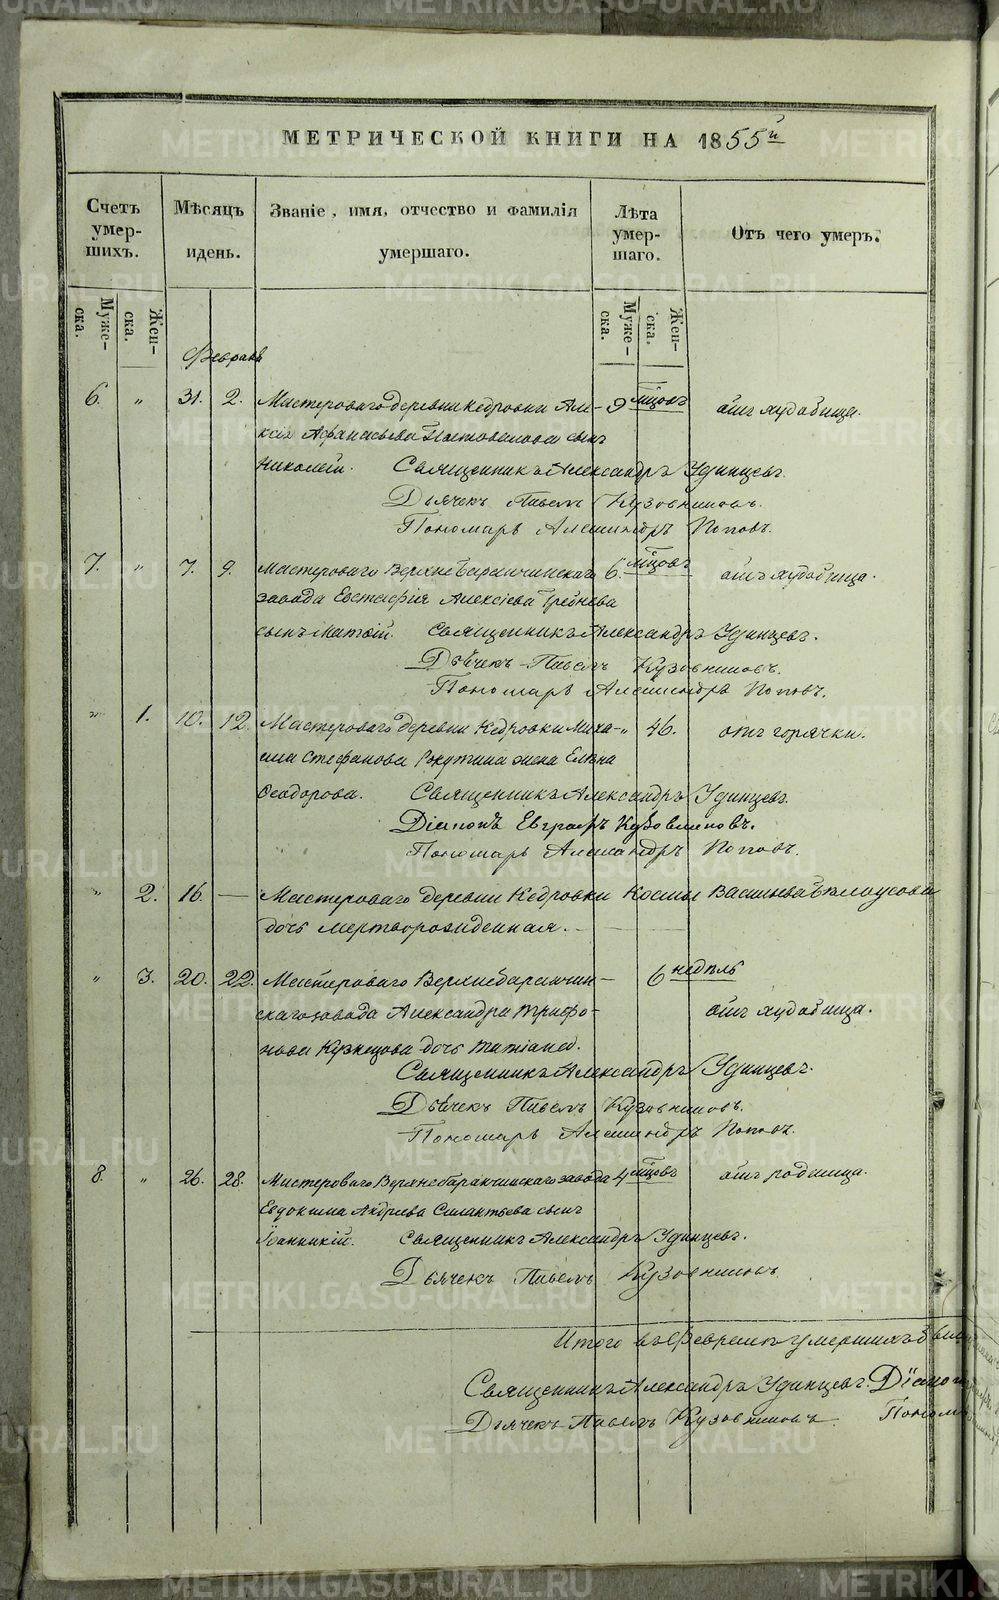 МЕТРИЧЕСКОЙ КНИГИ НА 1855й
Счетъ умер- шихъ.
Мѣсяцъ идень.
Званіе, имя, отчество и фамилія умершаго.
Лѣта умер- шаго.
Отъ чего умеръ.
Муже- ска.
Жен- ска.
Муже- ска.
Жен- ска.
Февраль
6. " 31. 2. Мастероваго деревни Кедровки Але- 9 мѣсцовъ отъ худобища.
ксія Афанасьева сынъ
Николай. Священникъ Александръ Удинцевъ.
Дьячекъ Павелъ Кузовниковъ.
Пономарь Александръ Поповъ.
7. " 7. 9. Мастероваго Верхнебаранчинскаго 6. мѣсцовъ отъ худобища.
завода Евстафія Алексіева Гребнева
сынъ Матѳій. Священникъ Александръ Удинцевъ.
Дьячекъ Павелъ Кузовниковъ.
Пономарь Александръ Поповъ.
" 1. 10. 12. Мастероваго деревни Кедровки Миха- " 46. отъ горячки.
ила Стефанова жена Елена
Ѳеодорова. Священникъ Александръ Удинцевъ.
Діаконъ Евграфъ Кузовниковъ.
Пономарь Александръ Поповъ.
" 2. 16. — Мастероваго деревни Кедровки Космы Васильева Бѣлоусова
дочь мертворожденная.
" 3. 20. 22. Мастероваго Верхнебаранчин- — 6 недѣль
скаго завода Александра Трифо- отъ худобища.
нова Кузнецова дочь Татіана.
Священникъ Александръ Удинцевъ.
Дьячекъ Павелъ Кузовниковъ.
Пономарь Александръ Поповъ.
8. " 26. 28. Мастероваго Верхнебаранчинскаго завода 4 мѣсцовъ отъ родимца.
Евдокима Андреева Силантьева сынъ
Іоанникій. Священникъ Александръ Удинцевъ.
Дьячекъ Павелъ Кузовниковъ
Итого въ Февралѣ умершихъ
Священникъ Александръ Удинцевъ. Діакон
Дьячекъ Павелъ Кузовниковъ. Поном
METRIKI.GASO-URAL.RU